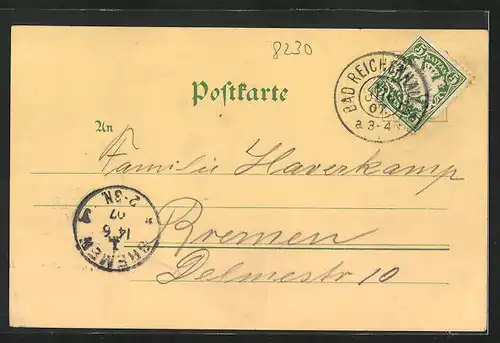 8230
Postkarte
BAD REICHENHALL
a. 3-4
5 BAYERN 5
An
Familie Haverkamp
Bremen
Delmestr 10
BREMEN
1
14 6
07
2-3N.